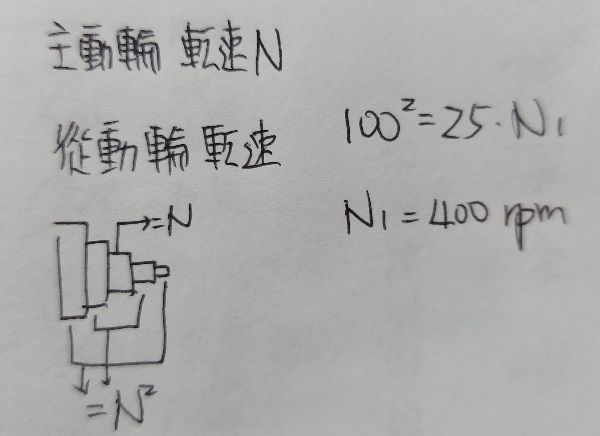 主動輪 転速N
從動輪 転速
100²=25·N₁
N₁=400 rpm
=N
=N²